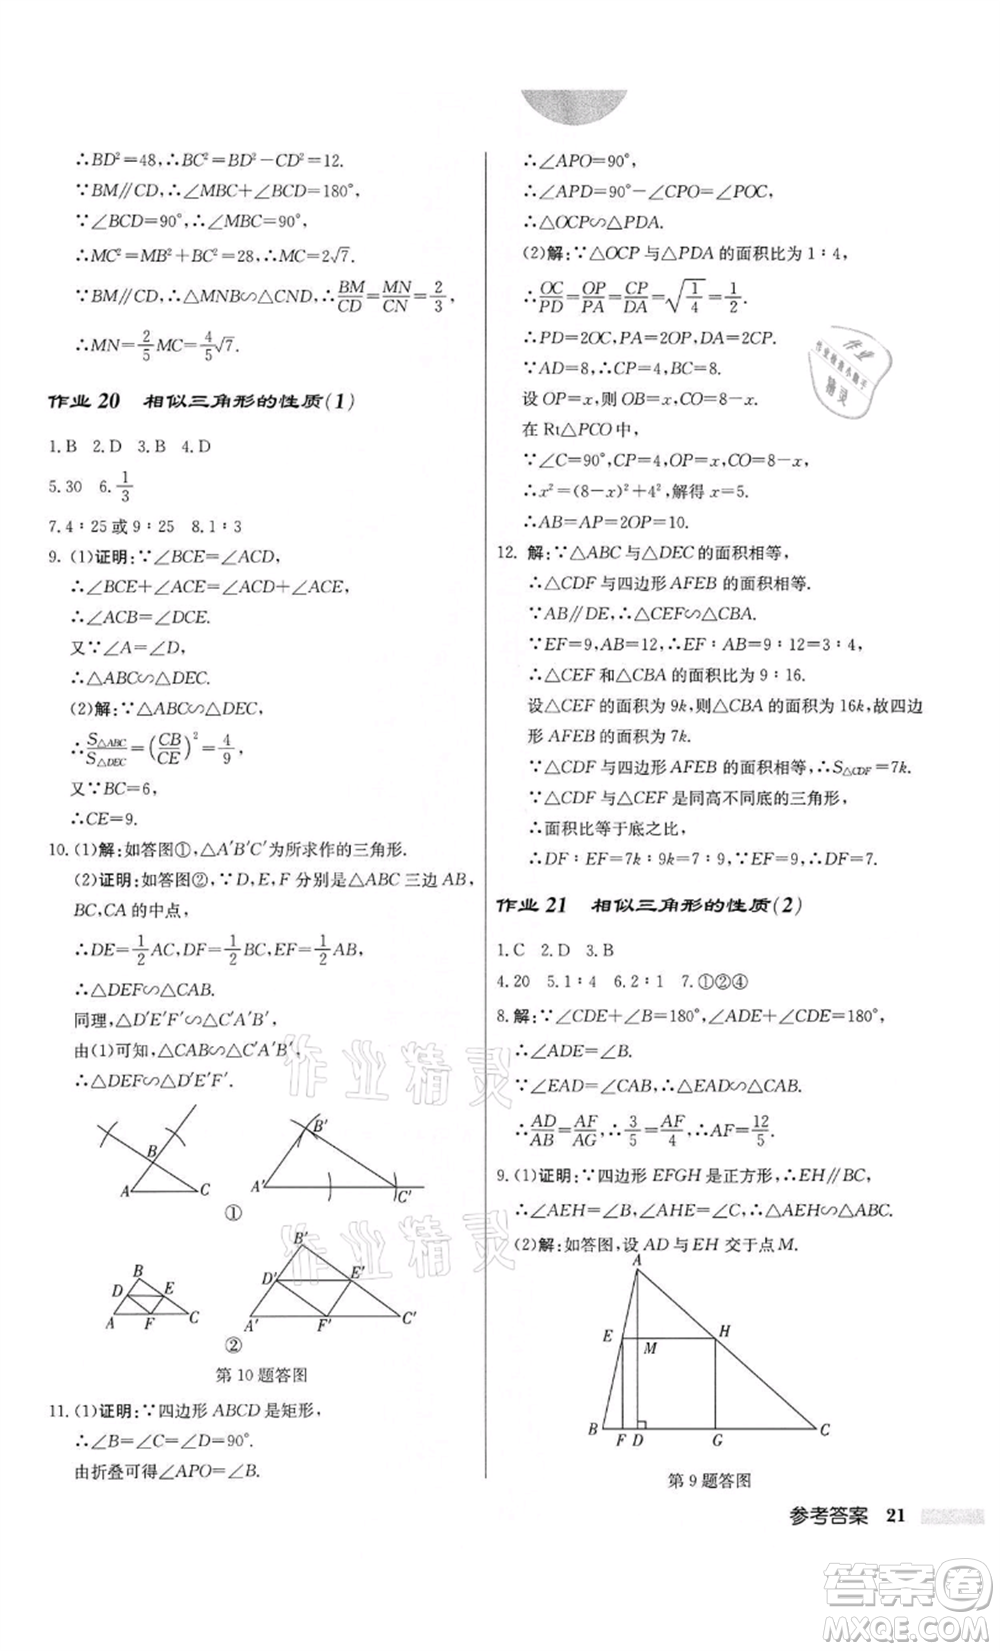 ∴BD²=48,∴BC²=BD²−CD²=12.
∵BM∥CD,∴∠MBC+∠BCD=180°.
∵∠BCD=90°,∴∠MBC=90°.
∴MC²=MB²+BC²=28,∴MC=2√7.
∵BM∥CD,∴△MNB∽△CND,∴BM/CD=MN/CN=2/3,
∴MN=2/5MC=4/5√7.
作业 20 相似三角形的性质(1)
1.B 2.D 3.B 4.D
5.30 6.1/3
7.4∶25或9∶25 8.1∶3
9.(1)证明:∵∠BCE=∠ACD,
∴∠BCE+∠ACE=∠ACD+∠ACE,
∴∠ACB=∠DCE.
又∵∠A=∠D,
∴△ABC∽△DEC.
(2)解:∵△ABC∽△DEC,
∴S△ABC/S△DEC=(CB/CE)²=4/9,
又∵BC=6,
∴CE=9.
10.(1)解:如答图①,△A′B′C′为所求作的三角形.
(2)证明:如答图②,∵D,E,F分别是△ABC三边AB,
BC,CA的中点,
∴DE=1/2AC,DF=1/2BC,EF=1/2AB,
∴△DEF∽△CAB.
同理,△D′E′F′∽△C′A′B′.
由(1)可知,△CAB∽△C′A′B′,
∴△DEF∽△D′E′F′.
B
A C
B′
A′ C′
①
B
D E
A F C
B′
D′ E′
A′ F′ C′
②
第10题答图
11.(1)证明:∵四边形ABCD是矩形,
∴∠B=∠C=∠D=90°.
由折叠可得∠APO=∠B.
∴∠APO=90°,
∴∠APD=90°−∠CPO=∠POC,
∴△OCP∽△PDA.
(2)解:∵△OCP与△PDA的面积比为1∶4,
∴OC/PD=OP/PA=CP/DA=√(1/4)=1/2.
∴PD=2OC,PA=2OP,DA=2CP.
∵AD=8,∴CP=4,BC=8.
设OP=x,则OB=x,CO=8−x.
在Rt△PCO中,
∵∠C=90°,CP=4,OP=x,CO=8−x,
∴x²=(8−x)²+4²,解得x=5.
∴AB=AP=2OP=10.
12. 解:∵△ABC与△DEC的面积相等,
∴△CDF与四边形AFEB的面积相等.
∵AB∥DE,∴△CEF∽△CBA.
∵EF=9,AB=12,∴EF∶AB=9∶12=3∶4,
∴△CEF和△CBA的面积比为9∶16.
设△CEF的面积为9k,则△CBA的面积为16k,故四边
形AFEB的面积为7k.
∵△CDF与四边形AFEB的面积相等,∴S△CDF=7k.
∵△CDF与△CEF是同高不同底的三角形,
∴面积比等于底之比,
∴DF∶EF=7k∶9k=7∶9,∵EF=9,∴DF=7.
作业 21 相似三角形的性质(2)
1.C 2.D 3.B
4.20 5.1∶4 6.2∶1 7.①②④
8.解:∵∠CDE+∠B=180°,∠ADE+∠CDE=180°,
∴∠ADE=∠B.
∵∠EAD=∠CAB,∴△EAD∽△CAB.
∴AD/AB=AF/AG,∴3/5=AF/4,∴AF=12/5.
9.(1)证明:∵四边形EFGH是正方形,∴EH∥BC,
∴∠AEH=∠B,∠AHE=∠C,∴△AEH∽△ABC.
(2)解:如答图,设AD与EH交于点M.
A
E M H
B F D G C
第9题答图
参考答案 21
作业
作业精灵
作业精灵
精灵
答案卷
MXQE.COM